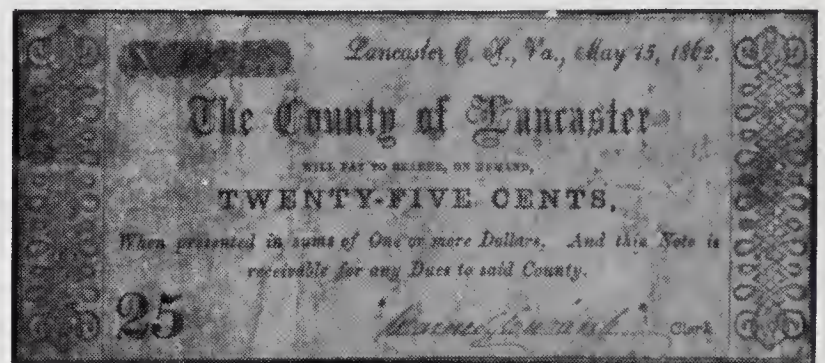 Lancaster C. H., Va., May 15, 1862.
The County of Lancaster
WILL PAY TO BEARER, ON DEMAND,
TWENTY-FIVE CENTS,
When presented in sums of One or more Dollars. And this Note is
receivable for any Dues to said County.
25
Clerk